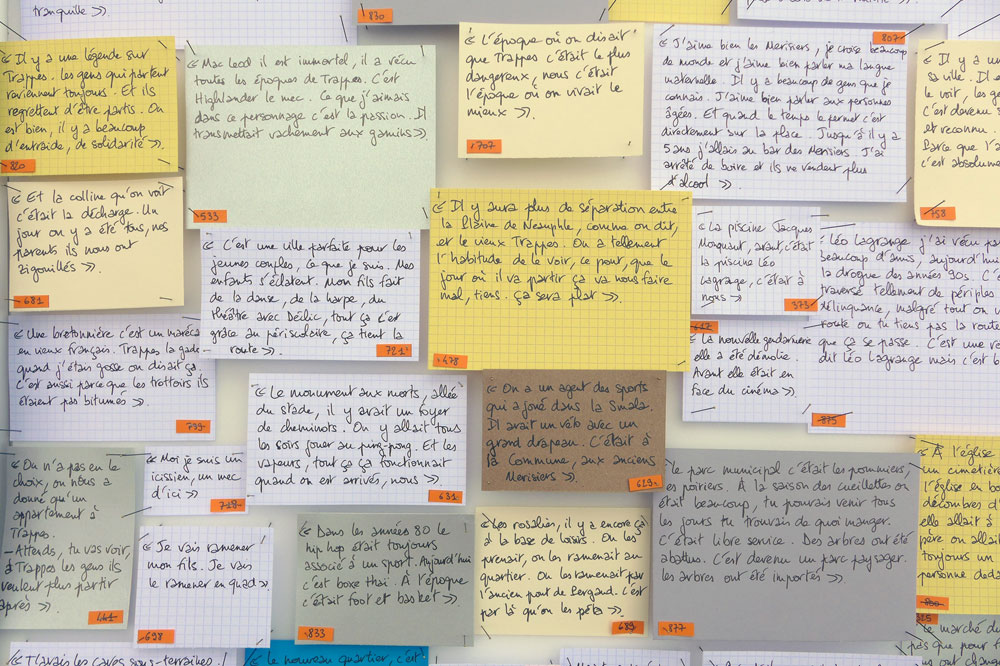 tranquille ».
830
« Il y a une légende sur
Trappes. les gens qui partent
reviennent toujours. Et ils
regrettent d'être partis. On
est bien, il y a beaucoup
d'entraide, de solidarité ».
820
« Mac Leod il est immortel, il a vécu
toutes les époques de Trappes. C'est
Highlander le mec. Ce que j'aimais
dans ce personnage c'est la passion. Il
transmettait vachement aux gamins ».
533
« L'époque où on disait
que Trappes c'était le plus
dangereux, nous c'était
l'époque où on vivait le
mieux ».
707
807
« J'aime bien les Merisiers, je croise beaucoup
de monde et j'aime bien parler ma langue
maternelle. Il y a beaucoup de gens que je
connais. J'aime bien parler aux personnes
âgées. Et quand le temps le permet c'est
directement sur la place. Jusqu'à il y a
5 ans j'allais au bar des Merisiers. J'ai
arrêté de boire et ils ne vendent plus
d'alcool »
« Il y a un
sa ville. Il
le voit, les ge
C'est devenu
et reconnu.
Parce que l'a
c'est absolume
758
« Et la colline qu'on voit
c'était la décharge. Un
jour on y a été tous, nos
parents ils nous ont
zigouillés ».
681
« C'est une ville parfaite pour les
jeunes couples, ce que je suis. Mes
enfants s'éclatent. Mon fils fait
de la danse, de la harpe, du
théâtre avec Déclic, tout ça c'est
grâce au périscolaire, ça tient la
route ».
721
« Il y aura plus de séparation entre
la Plaine de Neauphle, comme on dit,
et le vieux Trappes. On a tellement
l'habitude de le voir, ce pont, que le
jour où il va partir ça va nous faire
mal, tiens. Ça sera plat ».
478
« La piscine Jacques
Monquaut, avant, c'était
la piscine Léo
Lagrange, c'était à
nous »
373
Léo Lagrange j'ai vécu
beaucoup d'amis, aujourd'hui
la drogue des années 90s. C'
traversé tellement de périples
délinquance, malgré tout on
route ou tu tiens pas la route
que ça se passe. C'est une ve
dit Léo Lagrange mais c'est
875
617
« La nouvelle gendarmerie
elle a été démolie.
Avant elle était en
face du cinéma ».
« Une bretonnière c'est un maréca
en vieux français. Trappes la gado
quand j'étais gosse on disait ça.
C'est aussi parce que les trottoirs ils
étaient pas bitumés ».
799
« Le monument aux morts, allée
du stade, il y avait un foyer
de cheminots. On y allait tous
les soirs jouer au ping-pong. Et les
vapeurs, tout ça ça fonctionnait
quand on est arrivés, nous ».
631
« On a un agent des sports
qui a joué dans la Smala.
Il avait un vélo avec un
grand drapeau. C'était à
la Commune, aux anciens
Merisiers ».
629
« On n'a pas eu le
choix, on nous a
donné qu'un
appartement à
Trappes.
- Attends, tu vas voir,
à Trappes les gens ils
veulent plus partir
après ».
441
« Moi je suis un
icissien, un mec
d'ici »
718
« Je vais ramener
mon fils. Je vais
le ramener en quad ».
698
« Dans les années 80 le
hip hop était toujours
associé à un sport. Aujourd'hui
c'est boxe thaï. À l'époque
c'était foot et basket ».
833
« Les rosalies, il y a encore ça
à la base de loisirs. On les
prenait, on les ramenait au
quartier. On les ramenait par
l'ancien pont de Bergand. C'est
par là qu'on les péta ».
689
le parc municipal c'était les pommiers,
les poiriers. À la saison des cueillettes on
était beaucoup, tu pouvais venir tous
les jours tu trouvais de quoi manger.
C'était libre service. Des arbres ont été
abattus. C'est devenu un parc paysager.
les arbres ont été importés ».
877
« À l'église
un cimetière
l'église en bo
décombres d'
elle allait à
père on allait
toujours un
personne deda
800
825
du marché du
pas que pour
T'avais les caves sous-terraines !
« Le nouveau quartier, c'est